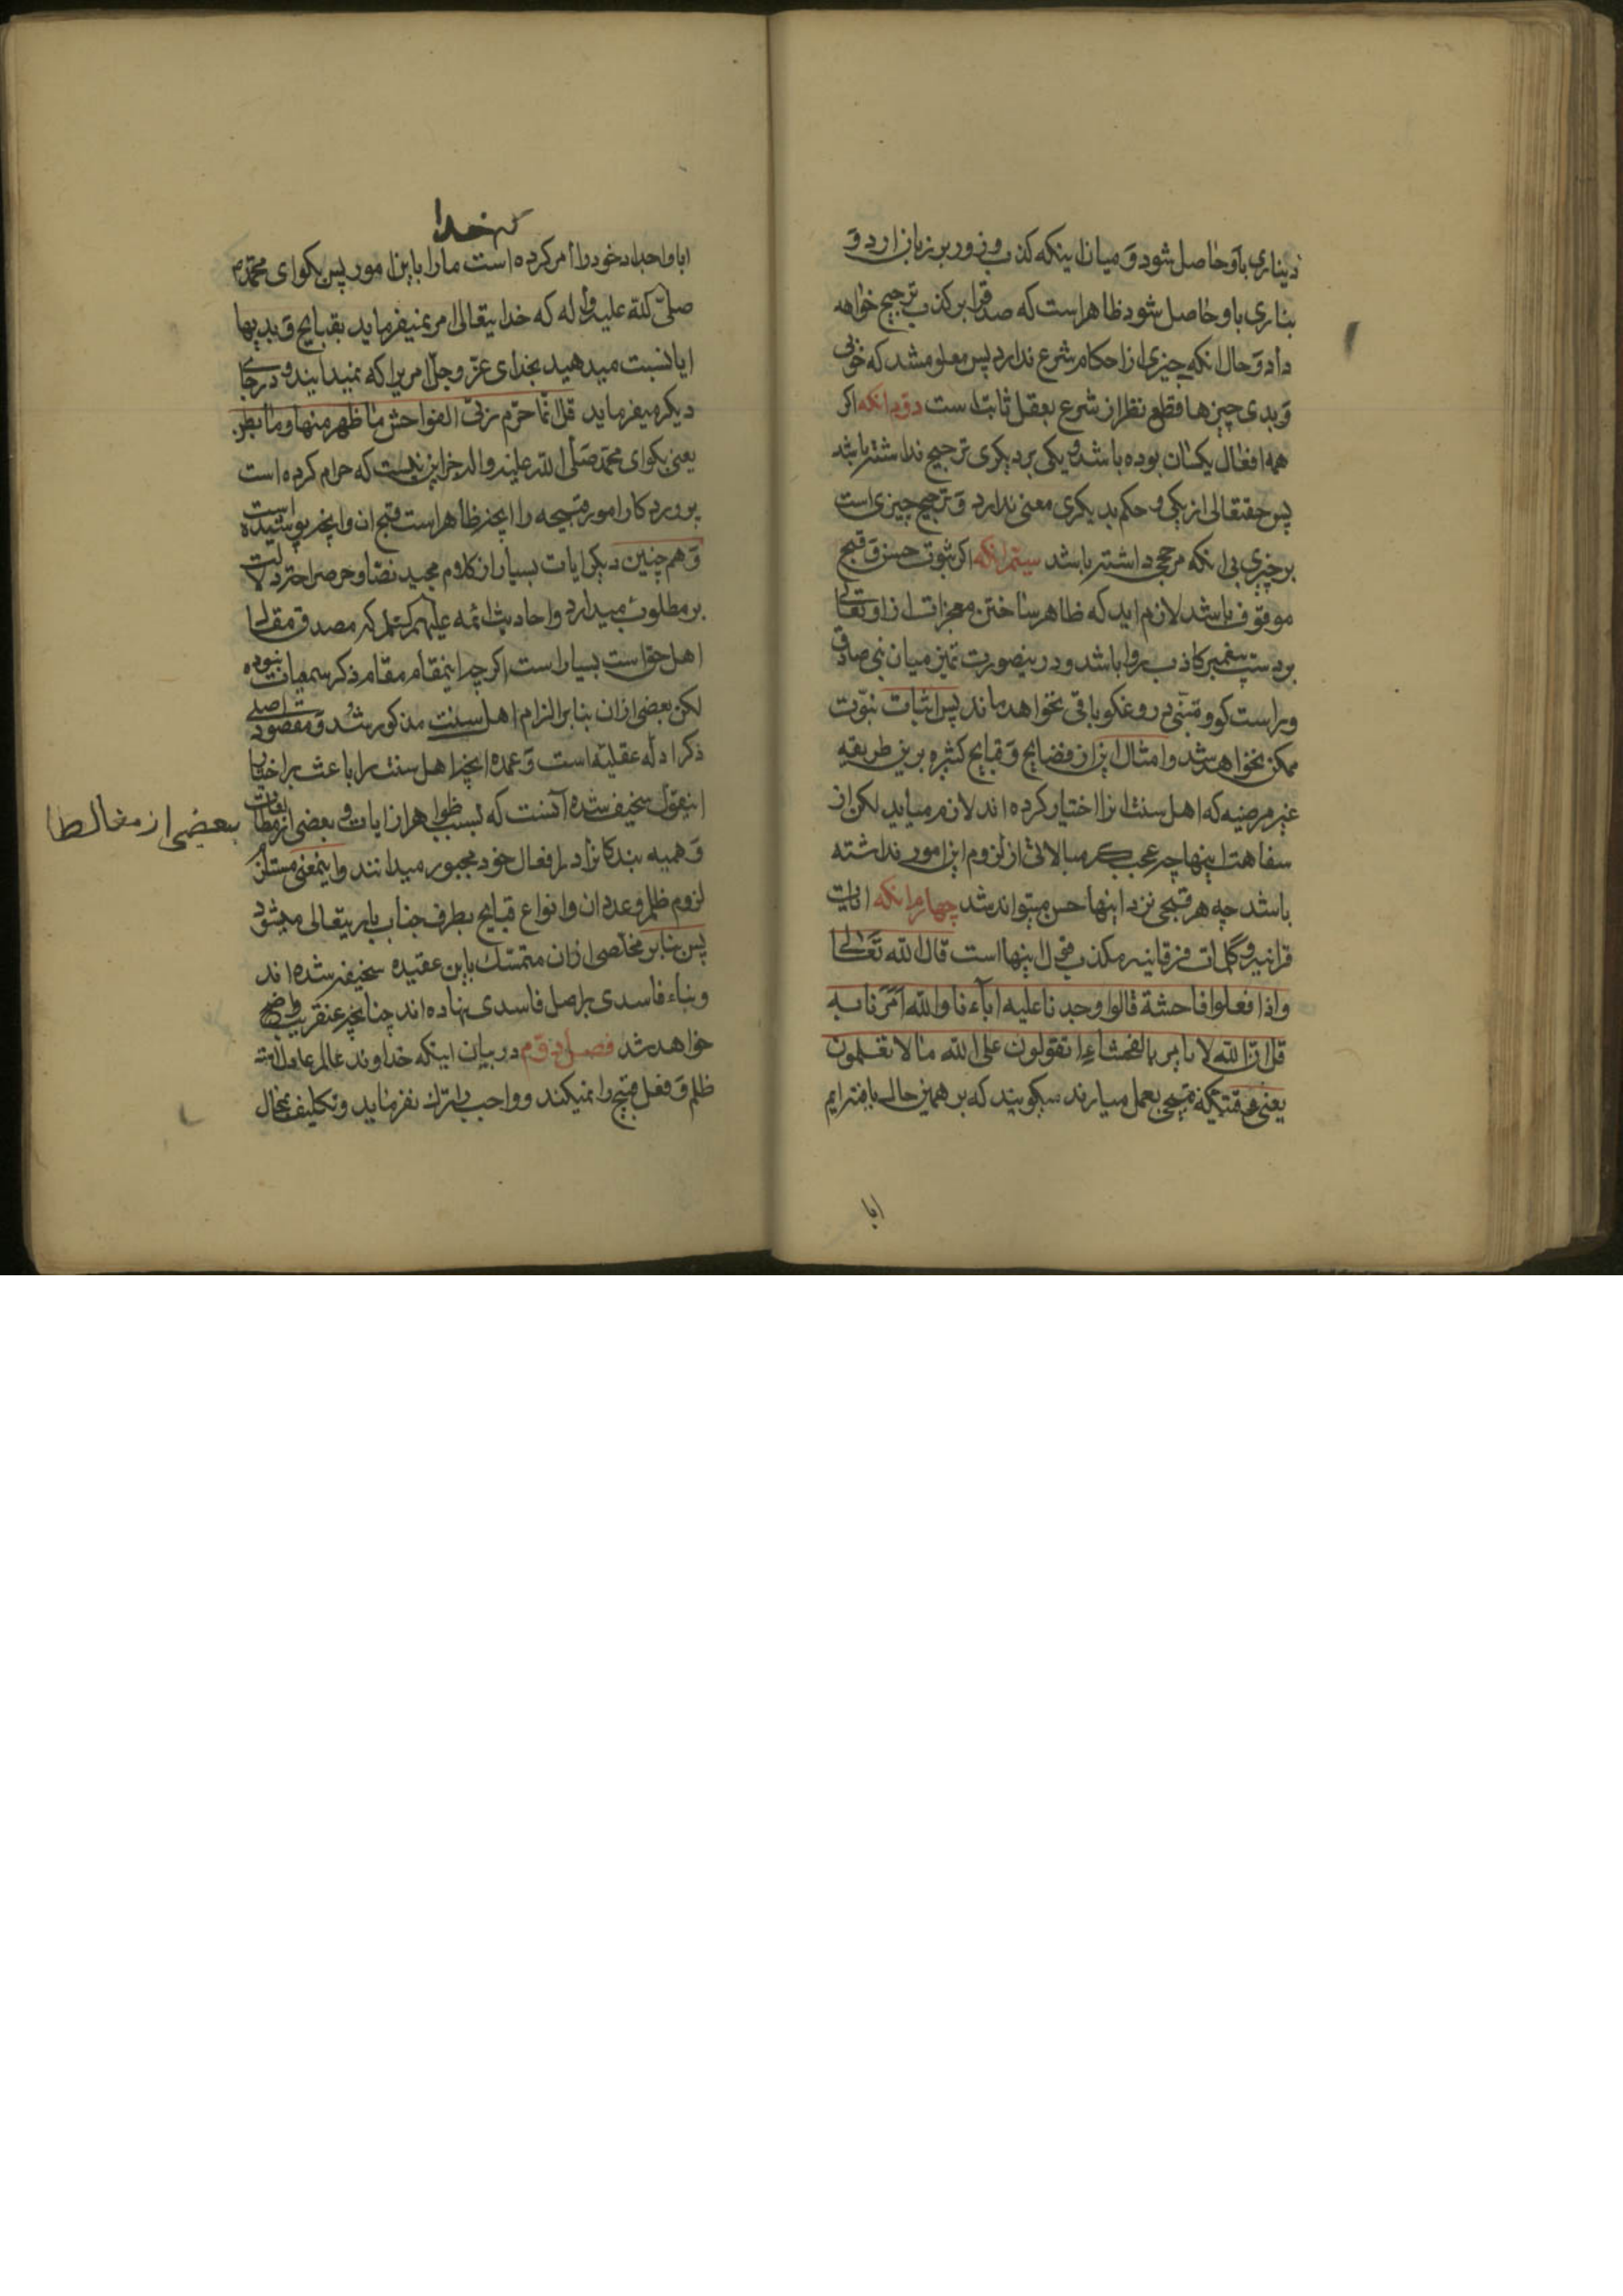 دیناری باو حاصل شود و میان اینکه کذب و زور بر زبان ارد و
بناری باو حاصل شود ظاهر است که صدق را بر کذب ترجیح خواهد
داد و حال انکه چیزی از احکام شرع ندارد پس معلوم شد که خوبی
و بدی چیزها قطع نظر از شرع بعقل ثابت است دوم انکه اکر
همه افعال یکسان بوده باشد و یکی بر دیکری ترجیح نداشته باشد
پس حقتعالی از یکی و حکم بدیکری معنی ندارد و ترجیح چیزی است
بر چیزی بی انکه مرجحی داشته باشد سیم انکه اکر ثبوت حسن و قبح
موقوف باشد لازم اید که ظاهر ساختن معجزات از او تعالی
بر دست پیغمبر کاذب روا باشد و درینصورت تمیز میان نبی صادق
و راست کو و متنبی دروغکو باقی نخواهد ماند پس اثبات نبوت
ممکن نخواهد شد و امثال این از فضایح و قبایح کثیره برین طریقه
غیر مرضیه که اهل سنت انرا اختیار کرده اند لازم میاید لکن از
سفاهت اینها چه عجب که مبالاتی از لزوم این امور نداشته
باشد چه هر قبحی نزد اینها حسن میتواند شد چهارم انکه ایات
قرانیه و کلمات فرقانیه مکذب قول اینها است قال الله تعالی
واذا فعلوا فاحشة قالوا وجدنا علیه اباءنا والله امرنا به
قل ان الله لا یامر بالفحشاء اتقولون علی الله ما لا تعلمون
یعنی وقتیکه قبیحی بعمل میارند میکویند که بر همین حال یافته ایم
ابا
که خدا
ابا و اجداد خود را امر کرده است ما را باین امور پس بکو ای محمد
صلی الله علیه و اله که خدایتعالی امر نمیفرماید بقبایح و بدیها
ایا نسبت میدهید بخدای عز و جل امریرا که نمیدانید و در جای
دیکر میفرماید قل انما حرم ربی الفواحش ما ظهر منها وما بطن
یعنی بکو ای محمد صلی الله علیه و اله جز این نیست که حرام کرده است
پروردکار امور قبیحه را انچه ظاهر است قبح ان و انچه پوشیده است
و همچنین دیکر ایات بسیار از کلام مجید نصا و صراحتا دلالت
بر مطلوب میدارد و احادیث ائمه علیهم که مصدق مقال
اهل حق است بسیار است اکر چه اینمقام مقام ذکر سمعیات نبوده
لکن بعضی از ان بنابر الزام اهل سنت مذکور شد و مقصود اصلی
ذکر ادله عقلیه است و عمده انچه اهل سنت را باعث بر اختیار
اینقول سخیف شده آنست که بسبب ظواهر از ایات و بعضی از
بعضی از مغالطا
وهمیه بندکانرا در افعال خود مجبور میدانند و اینمعنی مستلزم
لزوم ظلم و عدوان و انواع قبایح بطرف جناب باریتعالی میشود
پس بنابر مخلصی از ان متمسک باین عقیده سخیفه شده اند
و بناء فاسدی بر اصل فاسدی نهاده اند چنانچه عنقریب واضح
خواهد شد فصل دوم در بیان اینکه خداوند عالم عادلست
ظلم و فعل قبیح را نمیکند و واجب را ترک نفرماید و تکلیف بمحال